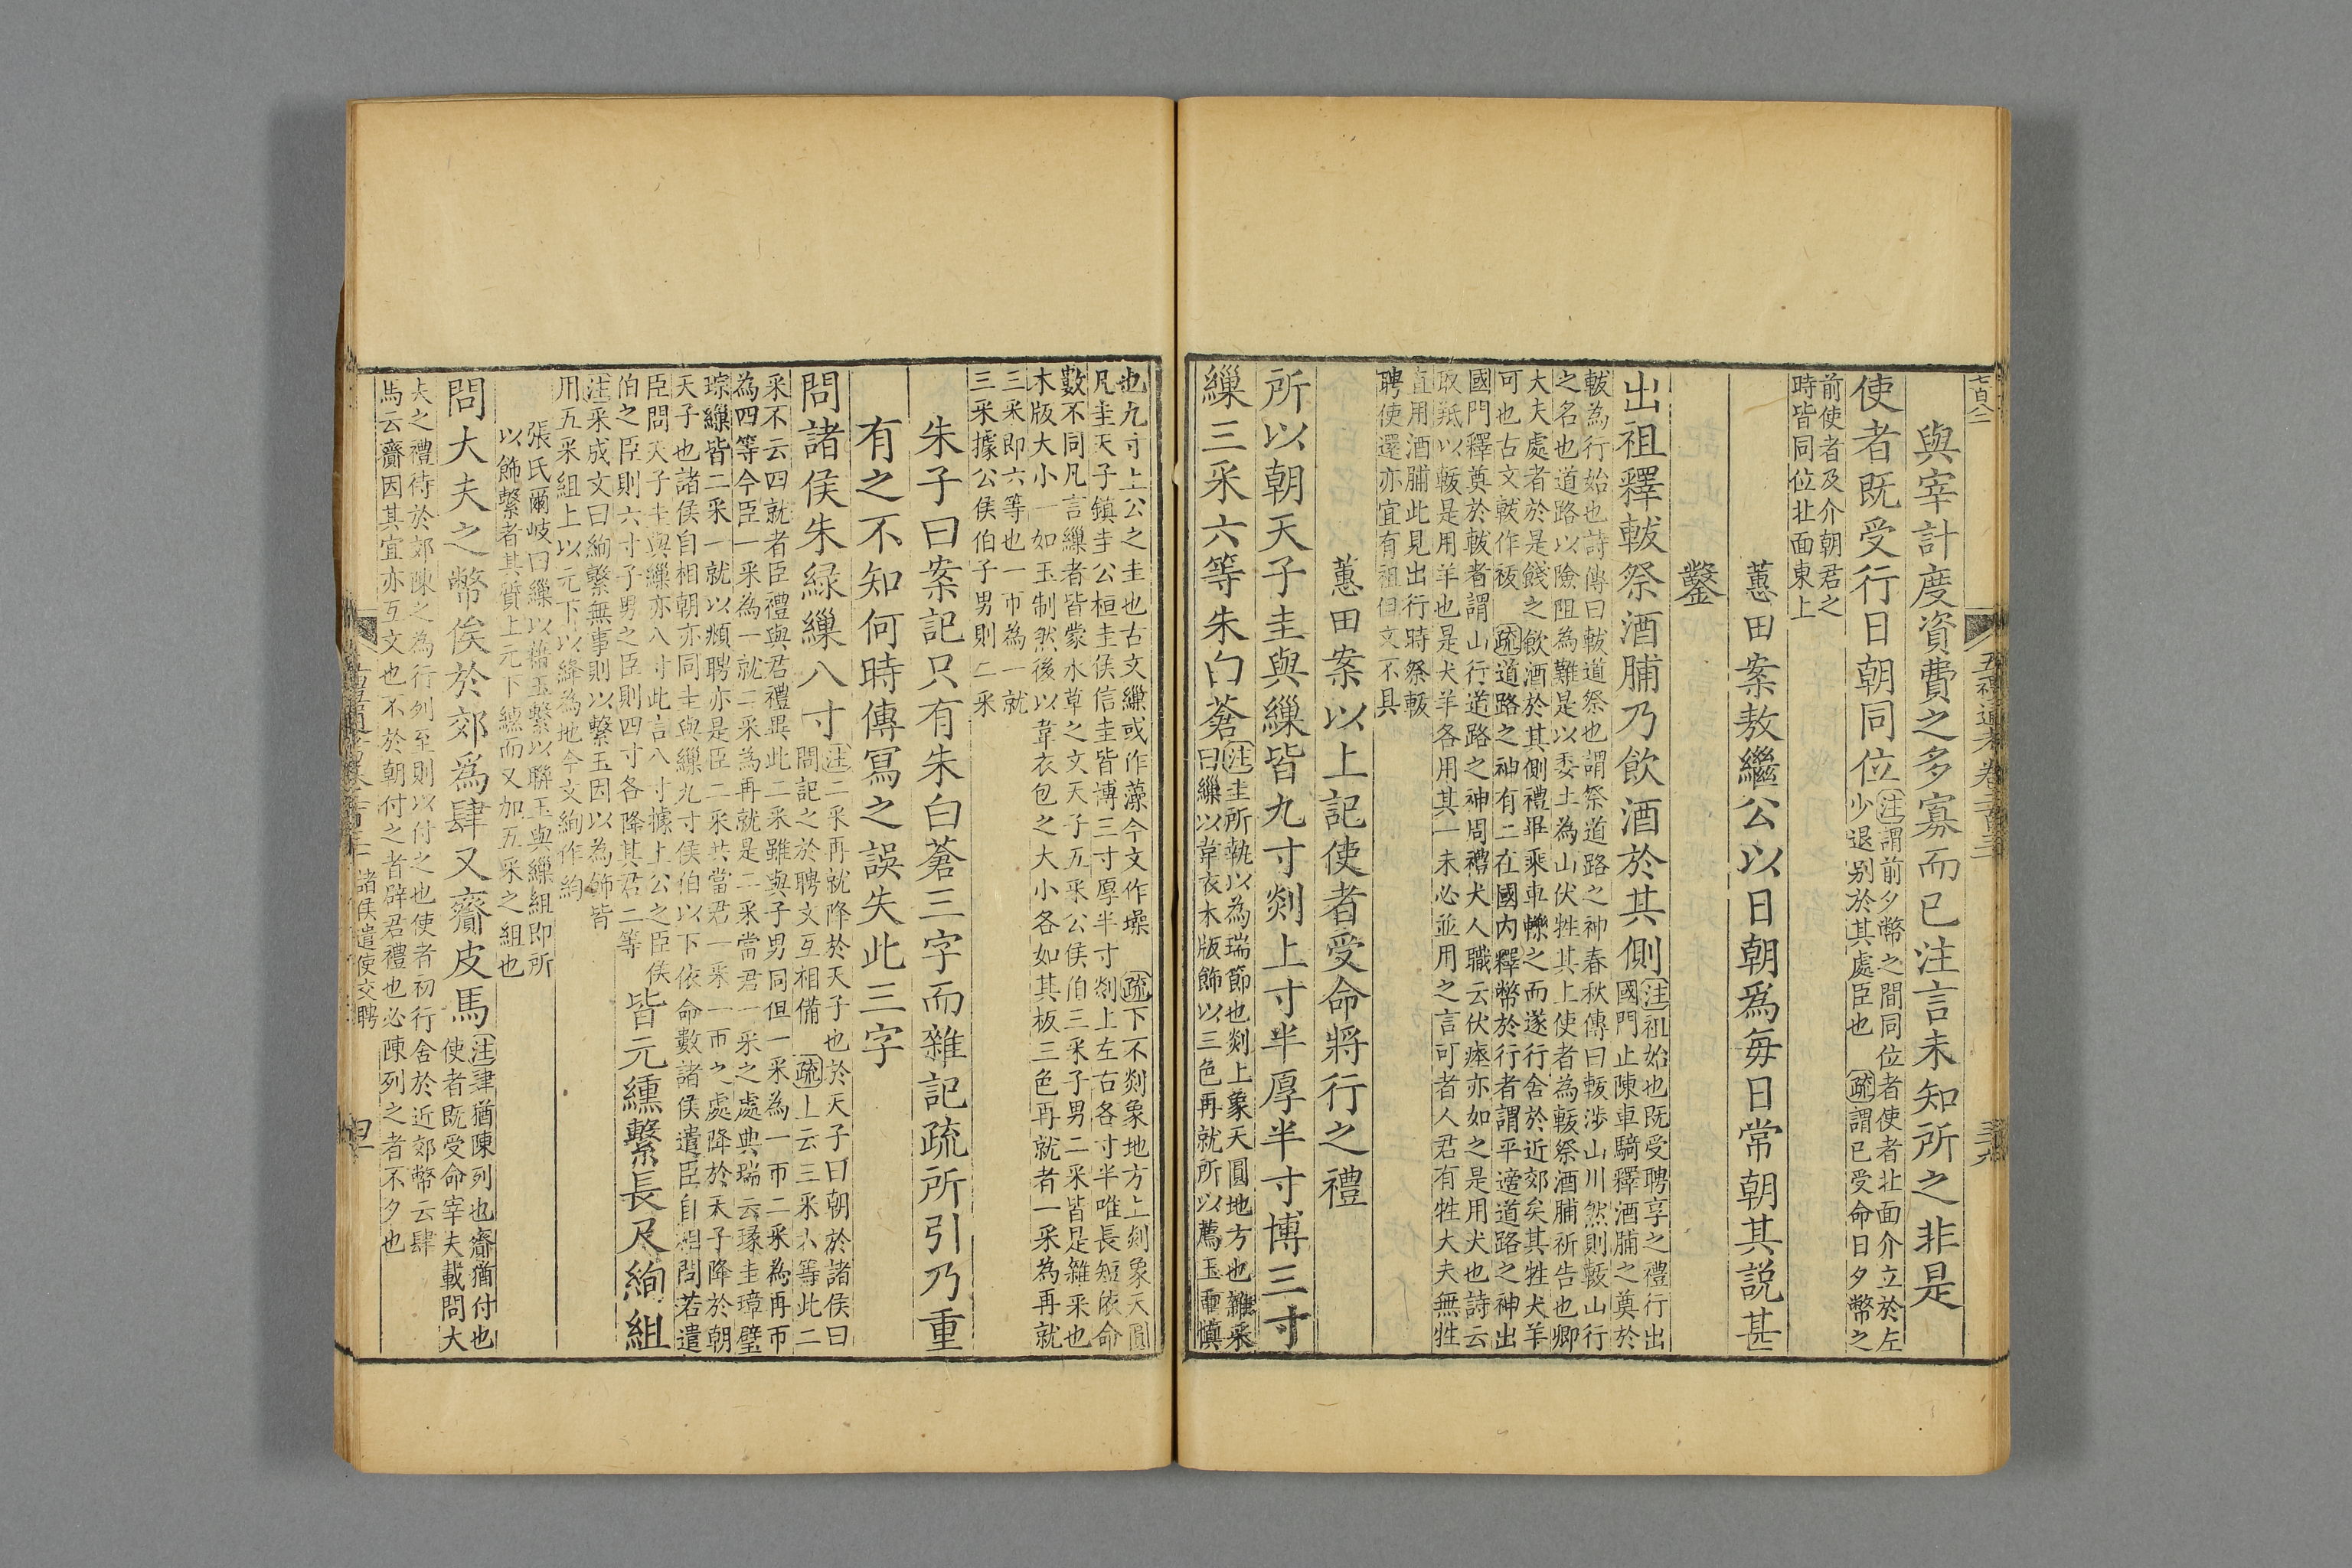 七百八二
五禮通考卷二百三十二
三十九
與宰計度資費之多寡而已注言未知所之非是
使者既受行日朝同位注謂前夕幣之間同位者使者北面介立於左
少退别於其處臣也　疏謂已受命日夕幣之
前使者及介朝君之
時皆同位北面東上
蕙田案敖繼公以日朝爲每日常朝其說甚
鑿
出祖釋軷祭酒脯乃飲酒於其側注祖始也既受聘享之禮行出
國門止陳車騎釋酒脯之奠於
軷為行始也詩傳曰軷道祭也謂祭道路之神春秋傳曰軷涉山川然則軷山行
之名也道路以險阻為難是以委土為山伏牲其上使者為軷祭酒脯祈告也卿
大夫處者於是餞之飲酒於其側禮畢乘車轢之而遂行舍於近郊矣其牲犬羊
可也古文軷作祓　疏道路之神有二在國内釋幣於行者謂平適道路之神出
國門釋奠於軷者謂山行道路之神周禮犬人職云伏瘞亦如之是用犬也詩云
取羝以軷是用羊也是犬羊各用其一未必並用之言可者人君有牲大夫無牲
直用酒脯此見出行時祭軷
聘使還亦宜有祖但文不具
蕙田案以上記使者受命將行之禮
所以朝天子圭與繅皆九寸剡上寸半厚半寸博三寸
繅三采六等朱白蒼注圭所執以為瑞節也剡上象天圓地方也雜采
曰繅以韋衣木版飾以三色再就所以薦玉重慎
也九寸上公之圭也古文繅或作藻今文作璪　疏下不剡象地方上剡象天圓
凡圭天子鎮圭公桓圭侯信圭皆博三寸厚半寸剡上左右各寸半唯長短依命
數不同凡言繅者皆蒙水草之文天子五采公侯伯三采子男二采皆是雜采也
木版大小一如玉制然後以韋衣包之大小各如其板三色再就者一采為再就
三采即六等也一帀為一就
三采據公侯伯子男則二采
朱子曰案記只有朱白蒼三字而雜記疏所引乃重
有之不知何時傳寫之誤失此三字
問諸侯朱緑繅八寸注二采再就降於天子也於天子曰朝於諸侯曰
問記之於聘文互相備　疏上云三采六等此二
采不云四就者臣禮與君禮異此二采雖與子男同但一采為一帀二采為再帀
為四等今臣一采為一就二采為再就是二采當君一采之處典瑞云瑑圭璋璧
琮繅皆二采一就以頫聘亦是臣二采共當君一采一帀之處降於天子降於朝
天子也諸侯自相朝亦同圭與繅九寸侯伯以下依命數諸侯遣臣自相問若遣
臣問天子圭與繅亦八寸此言八寸據上公之臣侯
伯之臣則六寸子男之臣則四寸各降其君二等　皆元纁繫長尺絢組
注采成文曰絢繫無事則以繫玉因以為飾皆
用五采組上以元下以絳為地今文絢作約
張氏爾岐曰繅以藉玉繫以聯玉與繅組即所
以飾繫者其質上元下纁而又加五采之組也
問大夫之幣俟於郊爲肆又齎皮馬注肆猶陳列也齎猶付也
使者既受命宰夫載問大
夫之禮待於郊陳之為行列至則以付之也使者初行舍於近郊幣云肆
馬云齎因其宜亦互文也不於朝付之者辟君禮也必陳列之者不夕也
諸侯遣使交聘